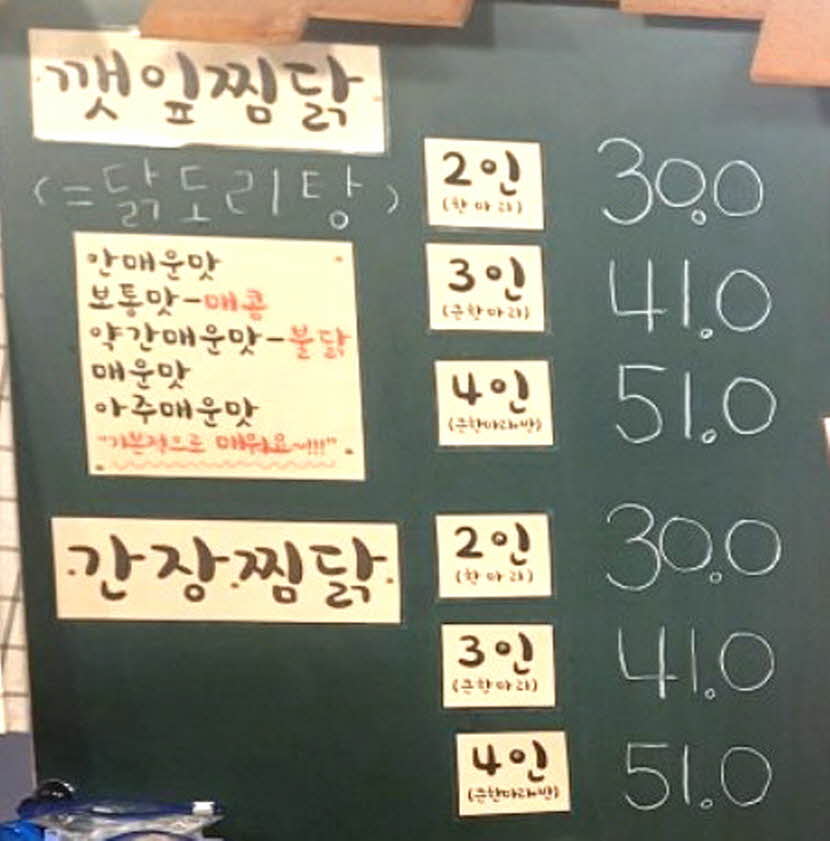 깻잎찜닭
(=닭도리탕)
안매운맛
보통맛-매콤
약간매운맛-불닭
매운맛
아주매운맛
"기본적으로 매워요~!!!"
2인 30.0
(한마리)
3인 41.0
(큰한마리)
4인 51.0
(큰한마리반)
간장찜닭
2인 30.0
(한마리)
3인 41.0
(큰한마리)
4인 51.0
(큰한마리반)